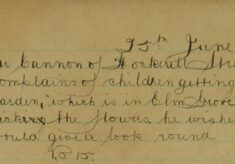 25th June
Cannon of Hockerill Stre
omplains of children getting
arden, which is in Elm Grove
the flowers he wishes
would give a look round